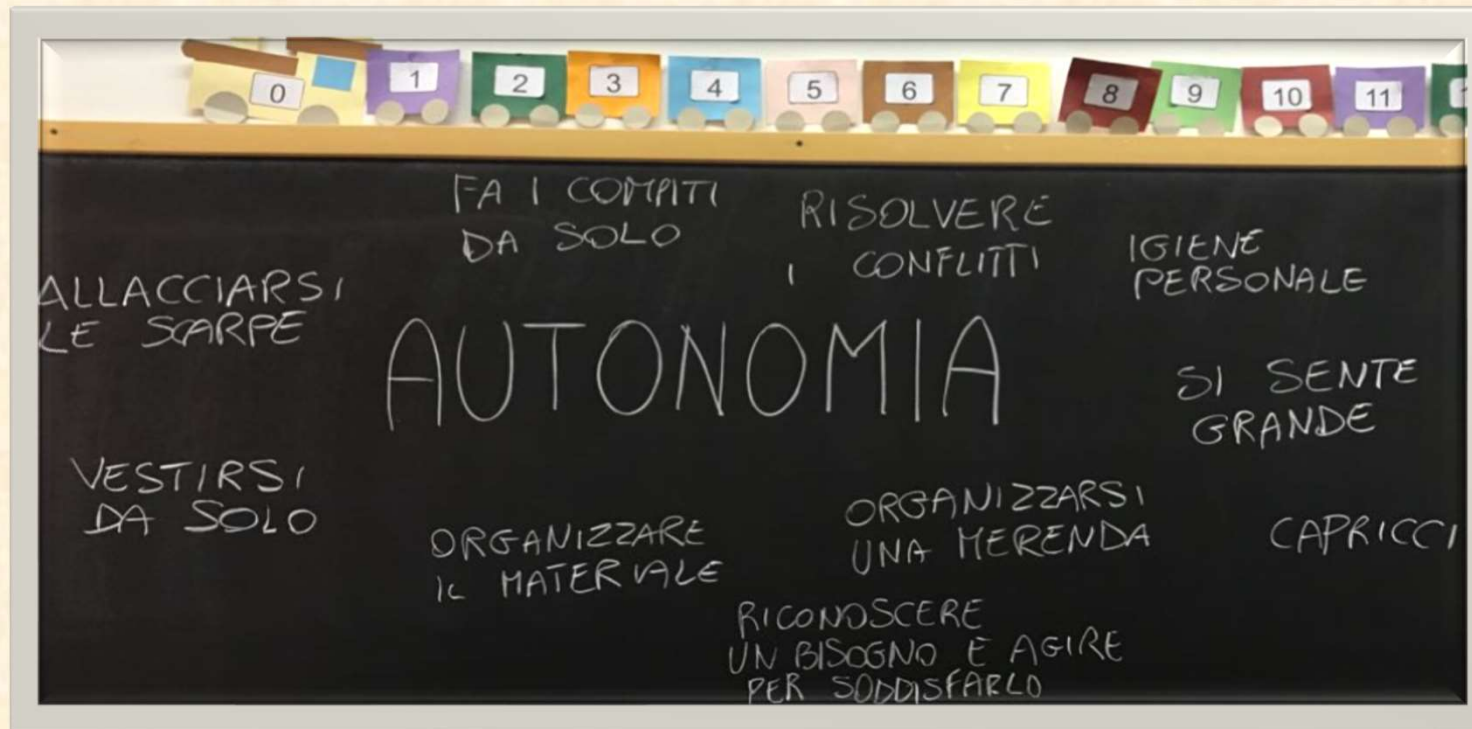 0 1 2 3 4 5 6 7 8 9 10 11
FA I COMPITI
DA SOLO
RISOLVERE
I CONFLITTI
IGIENE
PERSONALE
ALLACCIARSI
LE SCARPE
AUTONOMIA
SI SENTE
GRANDE
VESTIRSI
DA SOLO
ORGANIZZARE
IL MATERIALE
ORGANIZZARSI
UNA MERENDA
CAPRICCI
RICONOSCERE
UN BISOGNO E AGIRE
PER SODDISFARLO